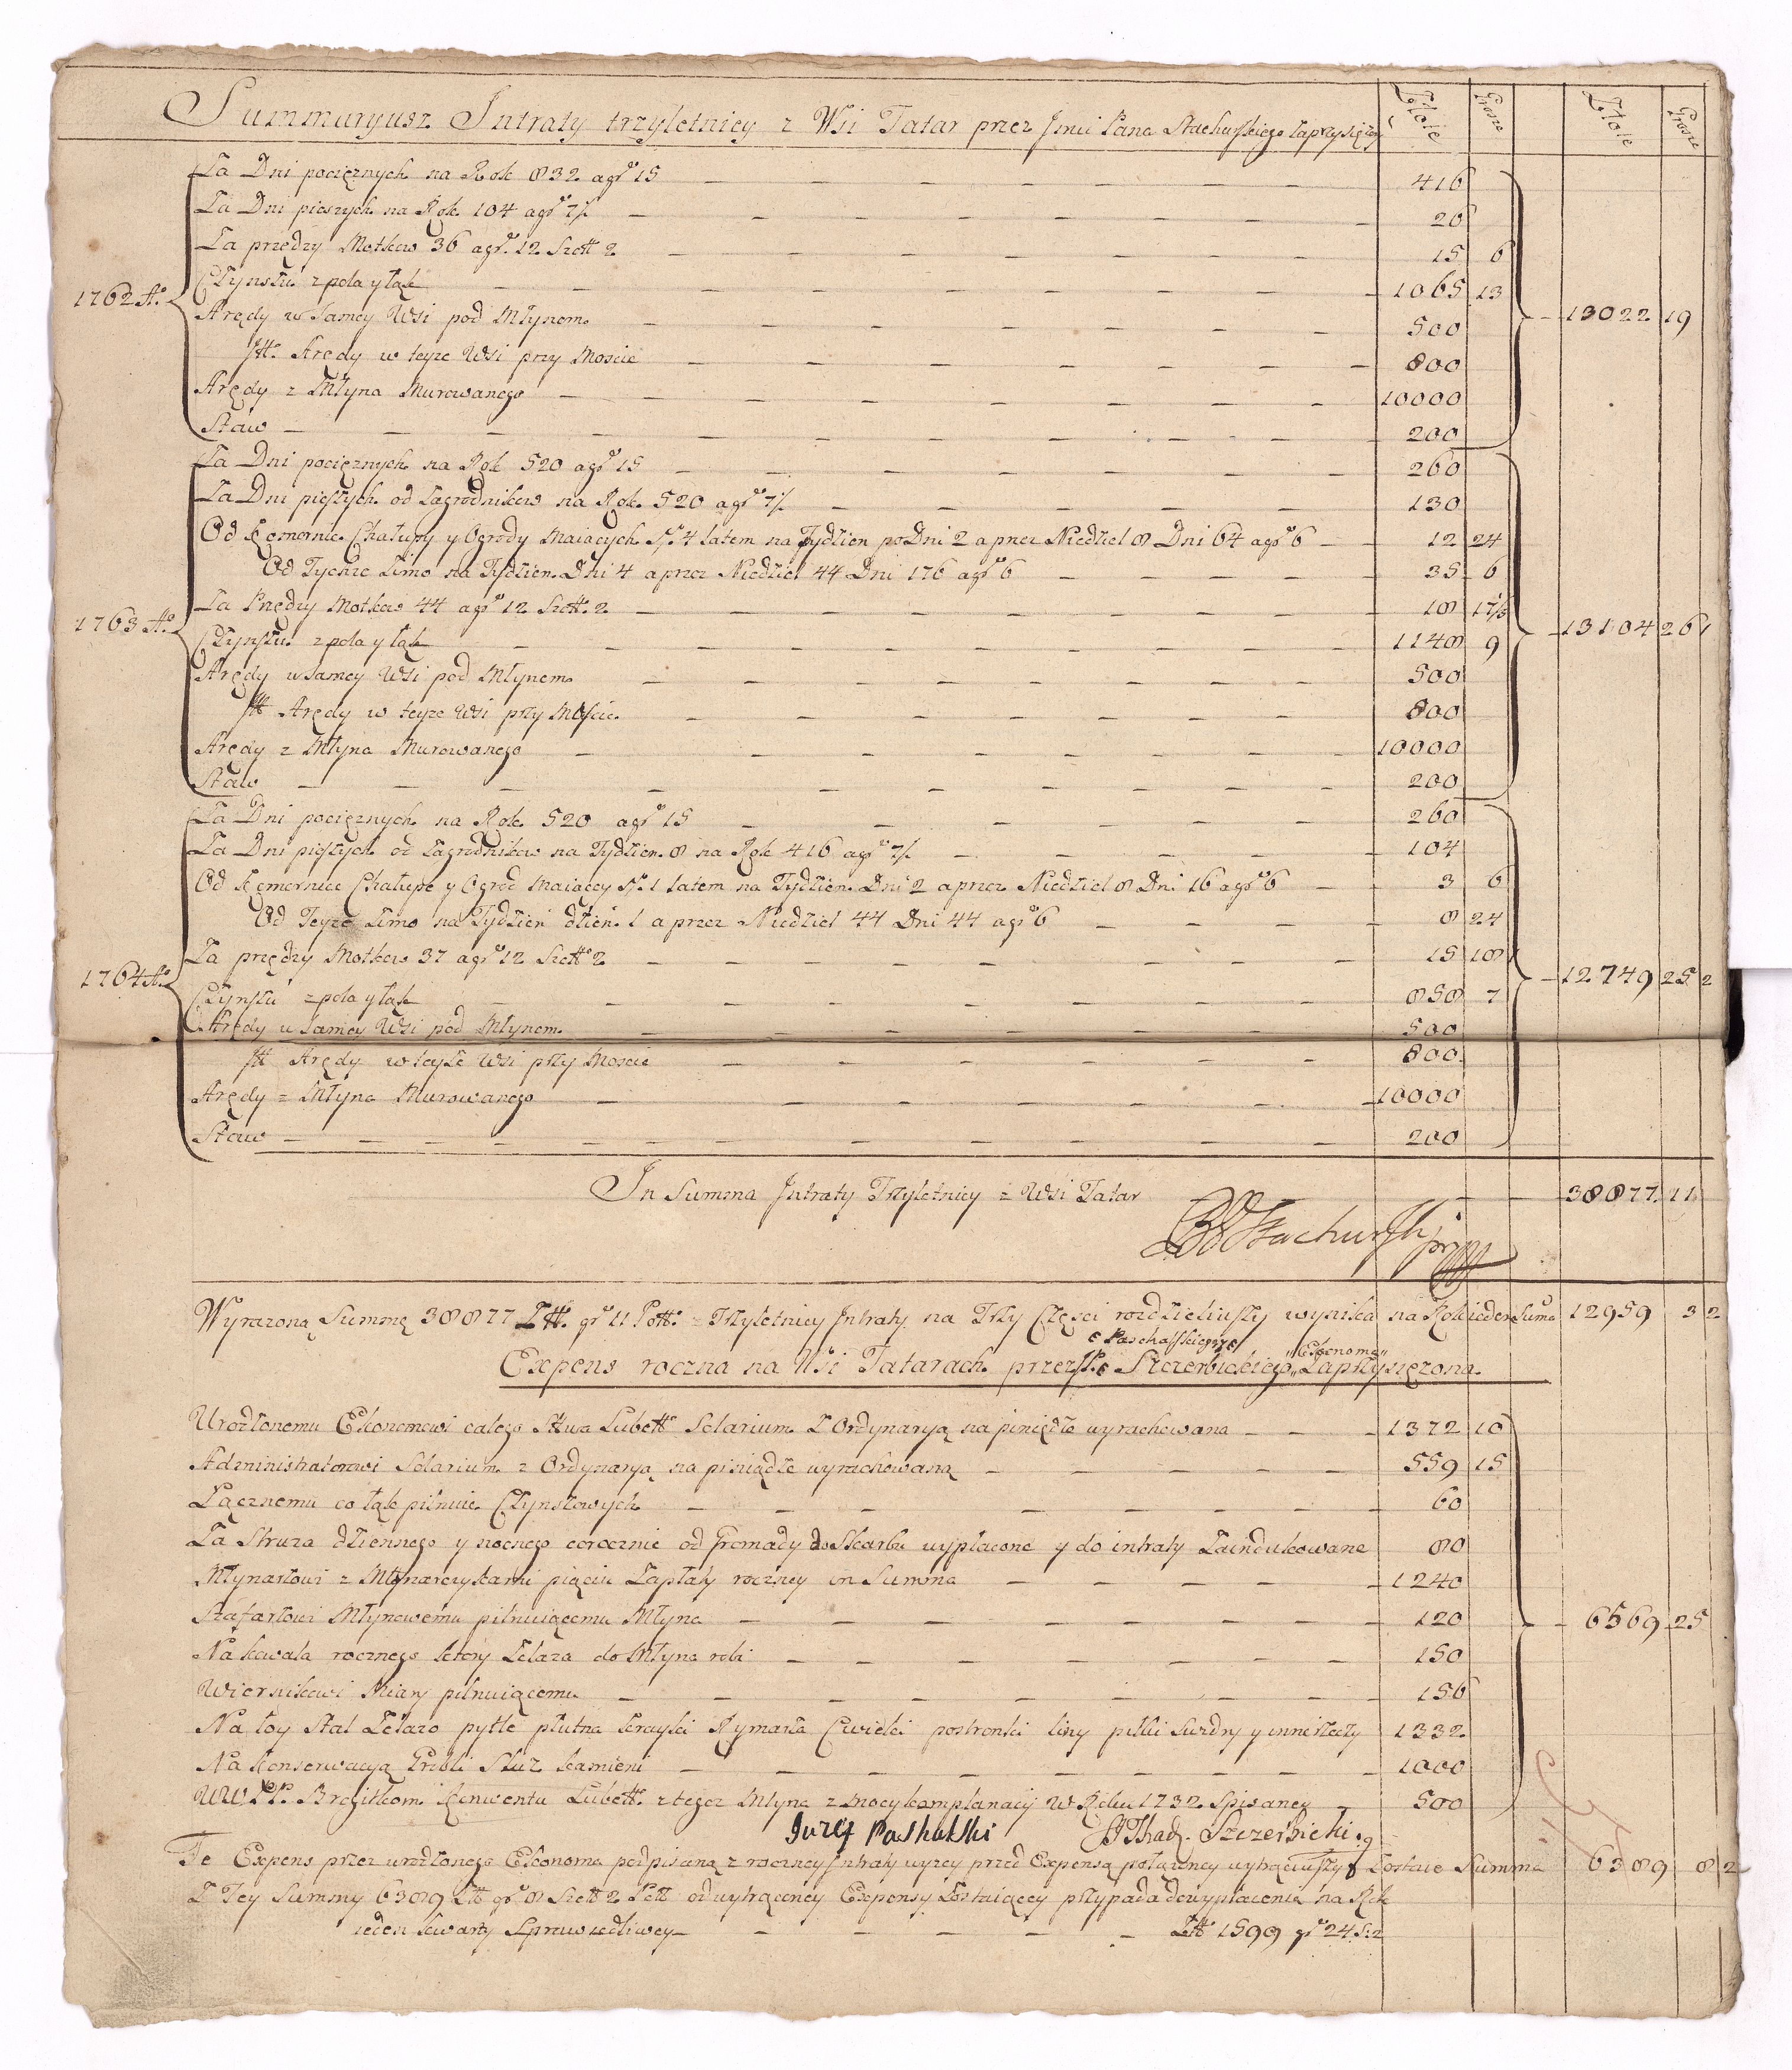 Summaryusz Intraty trzyletniey z Wsi Tatar przez Jmci Pana Stachurskiego zaprzysiężoney Złote Grosze Złote Grosze
Za Dni pociężnych na Rok 832 a gr 15 416
Za Dni pieszych na Rok 104 a gr 7/ 26
Za przędzy Motkow 36 a gr 12 Szel 2 15 6
1762 Ao
Czynszu z pola y łąk 1065 13
Arędy w Samey Wsi pod Młynem 500 13022 19
Itt Arędy w teyze Wsi przy Moscie 800
Arędy z Młyna Murowanego 10000
Staw 200
Za Dni pociężnych na Rok 520 a gr 15 260
Za Dni pieszych od Zagrodnikow na Rok 520 a gr 7/ 130
Od Komornic Chałupy y Ogrody maiących Nr 4 latem na Tydzien po Dni 2 a przez Niedziel 8 Dni 64 a gr 6 12 24
Od Tychze Zimo na Tydzien Dni 4 a przez Niedziel 44 Dni 176 a gr 6 35 6
Za Przędzy Motkow 44 a gr 12 Szel 2 18 17/
1763 Ao
Czynszu z pola y łąk 1148 9 13104 26 1
Arędy w Samey Wsi pod Młynem 500
Itt Arędy w teyze Wsi przy Moscie 800
Arędy z Młyna Murowanego 10000
Staw 200
Za Dni pociężnych na Rok 520 a gr 15 260
Za Dni pieszych od Zagrodnikow na Tydzien 8 na Rok 416 a gr 7/ 104
Od Komornice Chałupe y Ogrod maiącey Nr 1 latem na Tydzien Dni 2 a przez Niedziel 8 Dni 16 a gr 6 3 6
Od Teyze Zimo na Tydzien dzien 1 a przez Niedziel 44 Dni 44 a gr 6 8 24
Za przędzy Motkow 37 a gr 12 Szel 2 15 18
1764 Ao 12749 25 2
Czynszu z pola y łąk 858 7
Arędy w Samey Wsi pod Młynem 500
Itt Arędy w teyze Wsi przy Moscie 800
Arędy z Młyna Murowanego 10000
Staw 200
In Summa Intraty Trzyletniey z Wsi Tatar 38877 11
Stachurski
Wyrazoną Summę 38877 Ztt gr 11 Pott z Trzyletniey Intraty na Trzy Częsci rozdzieliwszy wynika na Rok ieden Suma 12959 3 2
Paschalskiego
Ekonoma
Expens roczna na Wsi Tatarach przez Szczerbickiego Zaprzysięzona
Urodzonemu Ekonomowi całego Sttwa Lubett Solarium Z Ordynaryą na piniądze wyrachowana 1372 10
Administratorowi Solarium z Ordynaryą na piniądze wyrachowaną 559 15
Łącznemu co łąk pilnuie Czynszowych 60
Za Struza dziennego y nocnego corocznie od Gromady do Skarbu wypłacone y do intraty Zaindukowane 80
Młynarzowi z Młynarczykami pięciu Zapłaty roczney in Summa 1240
Szafarzowi Młynowemu pilnuiącemu Młyna 120
6569 25
Na kowala rocznego ktory Zelaza do Młyna robi 150
Wiernikowi Miary pilnuiącemu 156
Na łoy Stal Zelazo pytle płutna Rymarza Cwieki postronki liny piłki y inne rzeczy 1332
Na konserwacyą Grobli Sluz kamieni 1000
WW Brygitkom Konwentu Lubett z tegoz Młyna z mocy komplanacij w Roku 1732 Spisaney 500
Iuzef Pashalski Szczerbicki
Te Expens przez urodzonego Ekonoma podpisaną z roczney Intraty wyzey przed Expensą połozoney wytrąciwszy Zostaie Summa 6389 8 2
Z Tey Summy 6389 Ztt gr 8 Szel 2 Pott od wytrąconey Expensy Zostaiącey przypada do wypłacenia na Rok
ieden kwarty Sprawiedliwey Ztt 1599 gr 24 S: 2